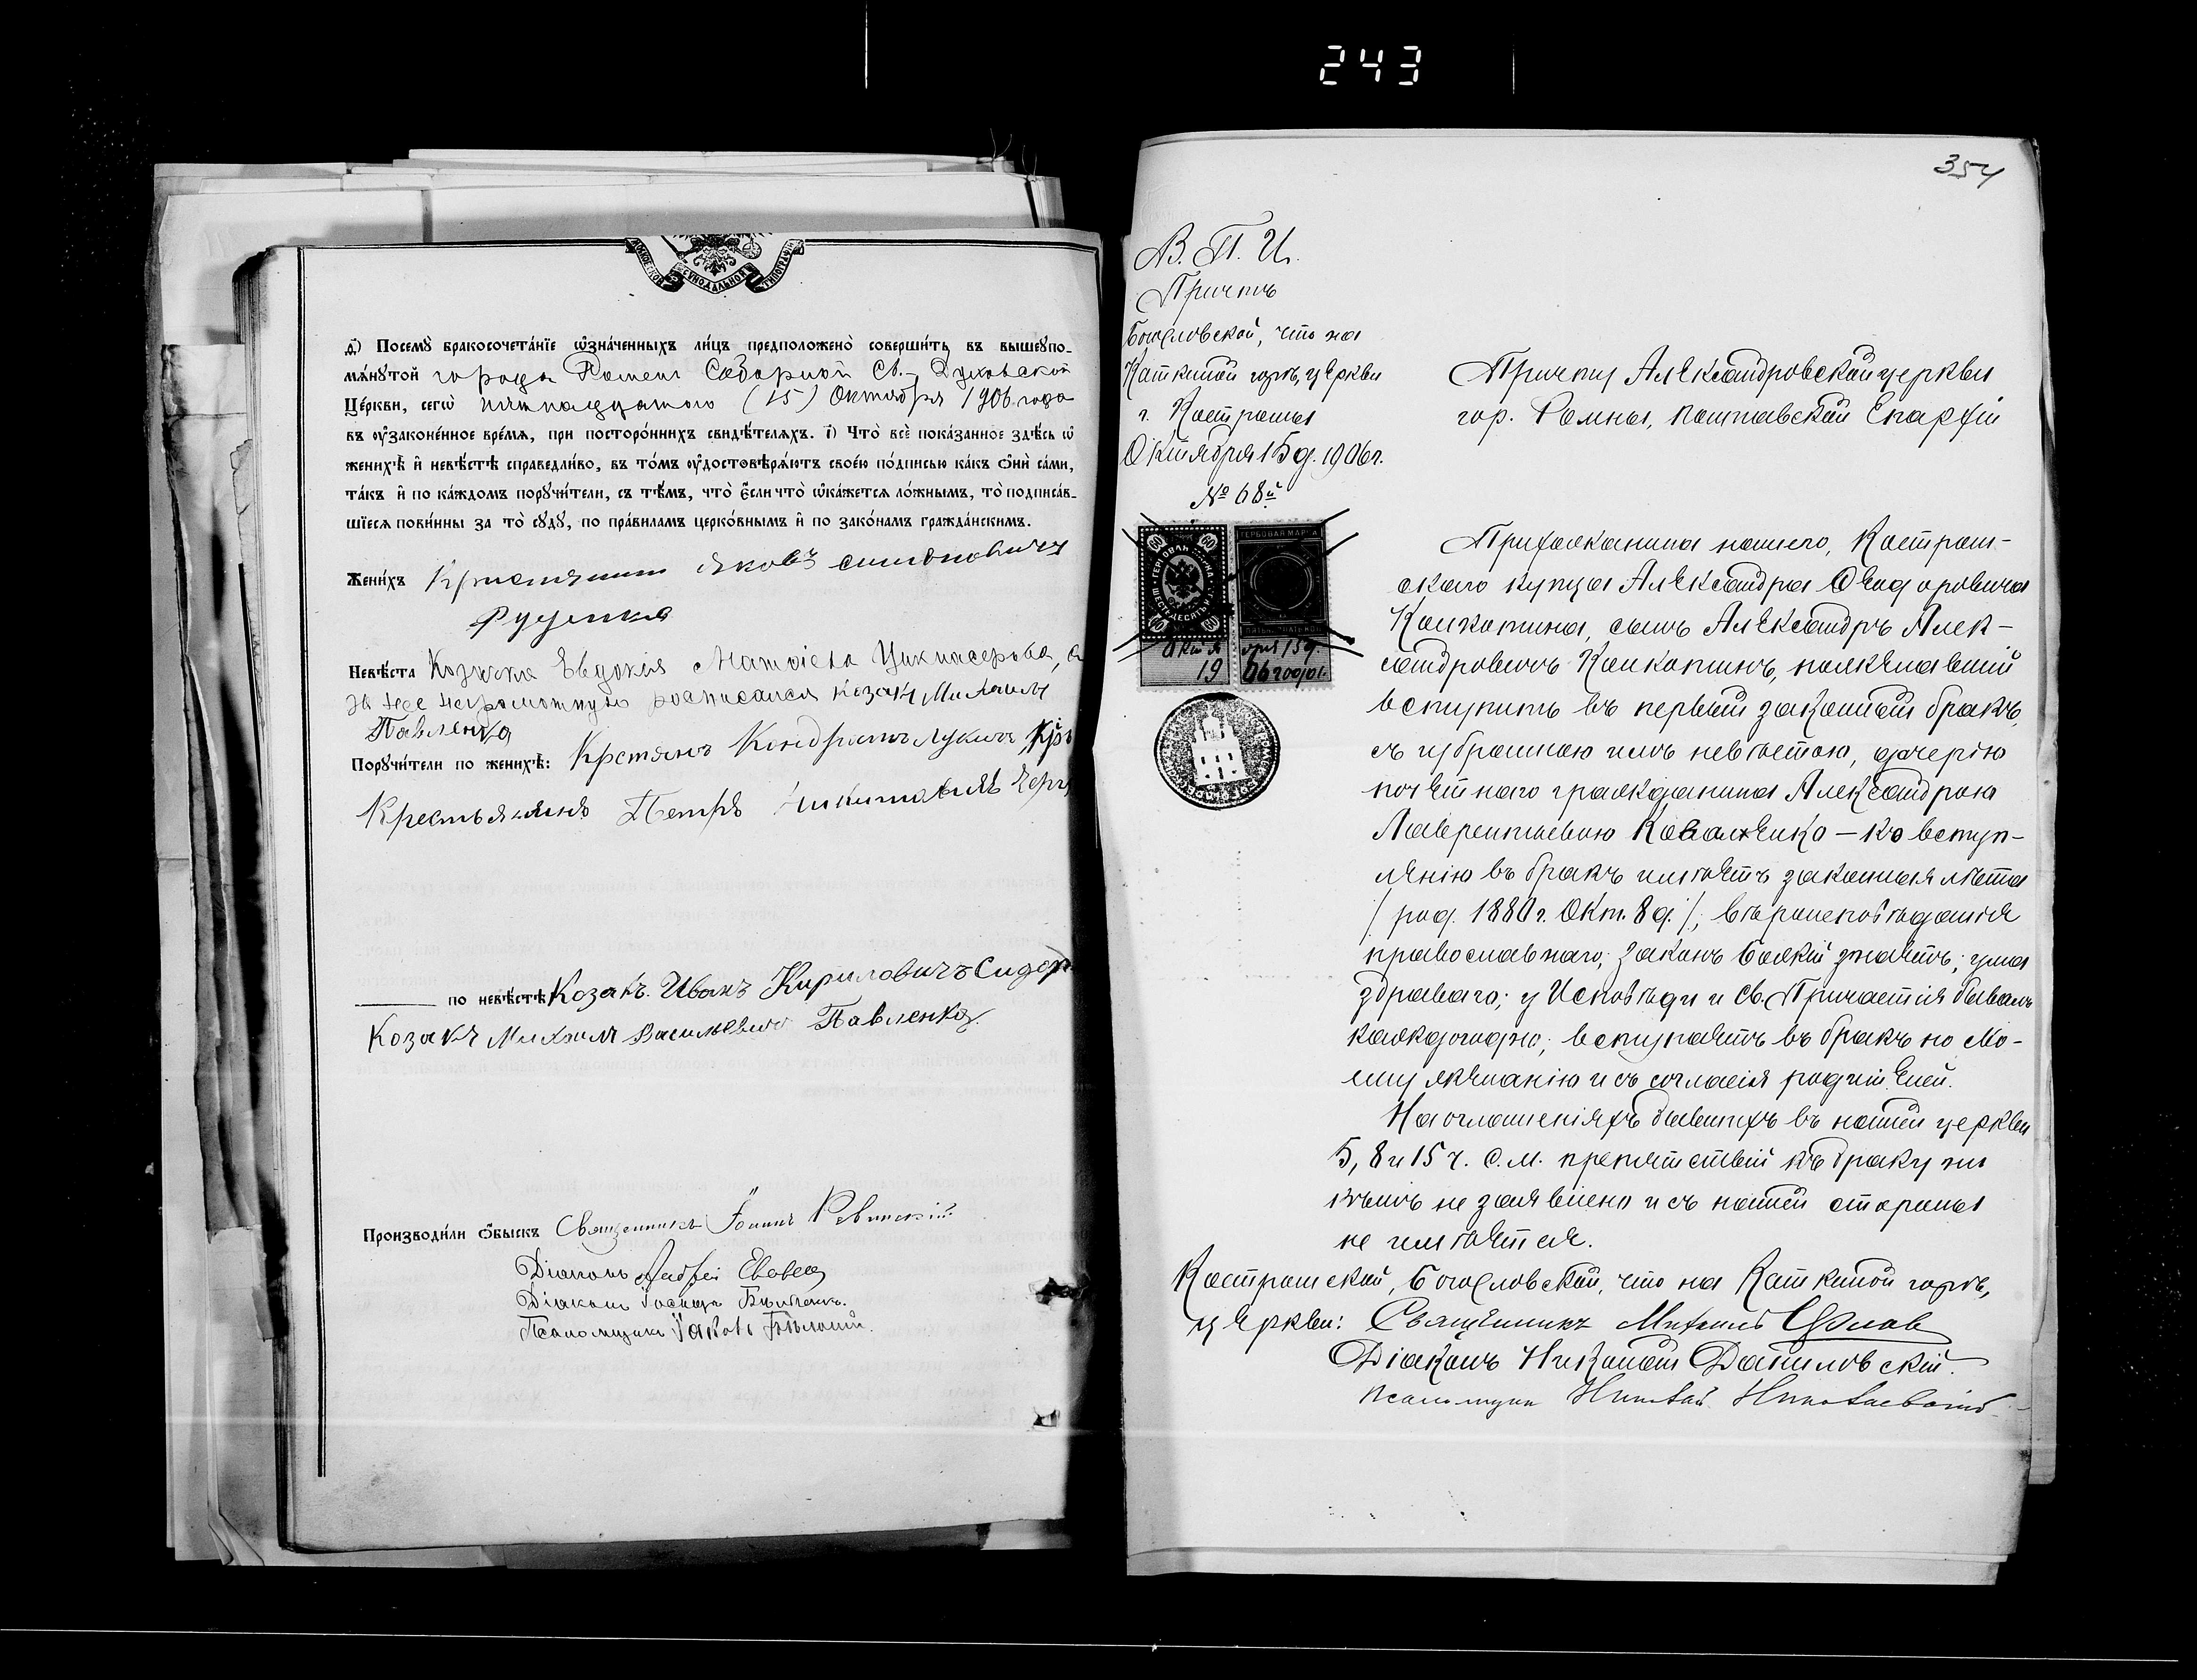 243
д҃) Посемꙋ̀ бракосочета́нїе ѡ҆зна́ченныхъ ли́цъ предположено̀ соверши́ть въ вышеꙋпо-
мѧ́нꙋтой города Ромен Соборной Св.-Духовской
Це́ркви, сегѡ̀ пятнадцатого (15) Октября 1906 года
въ ᲂу҆законе́нное вре́мѧ, при посторо́ннихъ свидѣ́телѧхъ. і҃) Что̀ всѐ пока́занное здѣ́сь ѡ҆
женихѣ̀ и҆ невѣ́стѣ справедли́во, въ то́мъ ᲂу҆достовѣрѧ́ютъ свое́ю по́дписью ка́къ ѻ҆нѝ са́ми,
та́къ и҆ по ка́ждомъ порꙋчи́тели, съ тѣ́мъ, что̀ є҆́сли что̀ ѡ҆ка́жетсѧ ло́жнымъ, то̀ подписа́в-
шїесѧ пови́нны за то̀ сꙋдꙋ̀, по пра́виламъ церко́внымъ и҆ по зако́намъ гражда́нскимъ.
Жени́хъ Яковъ Симоновичъ
Руденко
Невѣ́ста Козачка Евдокія Матвіева
за нее неграмотную росписался козакъ Михаилъ
Павленко
Порꙋчи́тели по женихѣ̀: Крстянъ Кондратъ Лукичъ
Крестьянинъ Петръ
по невѣ́стѣ Козакъ Иванъ Кириловичъ Сидор
Козакъ Михаил Васильевичъ Павленко
Производи́ли ѻ҆́быскъ Священникъ Іоаннъ
Діаконъ Андрей
Діаконъ
Псаломщикъ Іаковъ
354
В. П. И.
Причтъ
Богословской, что на
Каткиной горѣ, церкви
г. Костромы
Октября 15 д. 1906 г.
№ 68й
ГЕРБОВАЯ МАРКА
60
Октя бря 15 д.
19 06 года
Причту Александровской церкви
гор. Ромны, Полтавской Епархіи
Прихожанина нашего, Костром-
скаго купца Александра Ѳеодоровича
сынъ Александръ Алек-
сандровичъ пожелавшій
вступить въ первый законный бракъ,
съ избранною имъ невѣстою, дочерію
почетнаго гражданина Александрою
Лаврентьевою Коваленко — къ вступ-
ленію въ бракъ имѣетъ законныя лѣта
/ род. 1880 г. Окт. 8 д. /; вѣроисповѣданія
православнаго; законъ Божій знаетъ; ума
здраваго; у Исповѣди и Св. Причастія бывалъ
каждогодно; вступаетъ въ бракъ по сво-
ему желанію и съ согласія родителей.
На оглашеніяхъ бывшихъ въ нашей церкви
5, 8 и 15 ч. с. м. препятствій къ браку ни
кѣмъ не заявлено и съ нашей стороны
не имѣется.
Костромской, Богословской, что на Каткиной горѣ,
церкви: Священникъ Михаилъ
Діаконъ Николай Даниловскій.
Псаломщикъ Николай